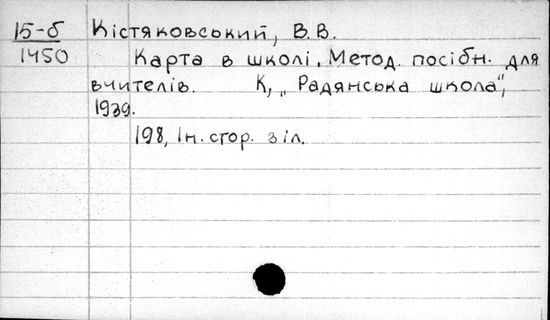 15-б Кістяковський, В.В.
1450 Карта в школі. Метод. посібн. для
вчителів. К, „Радянська школа",
1939.
198, Iн. стор. з іл.